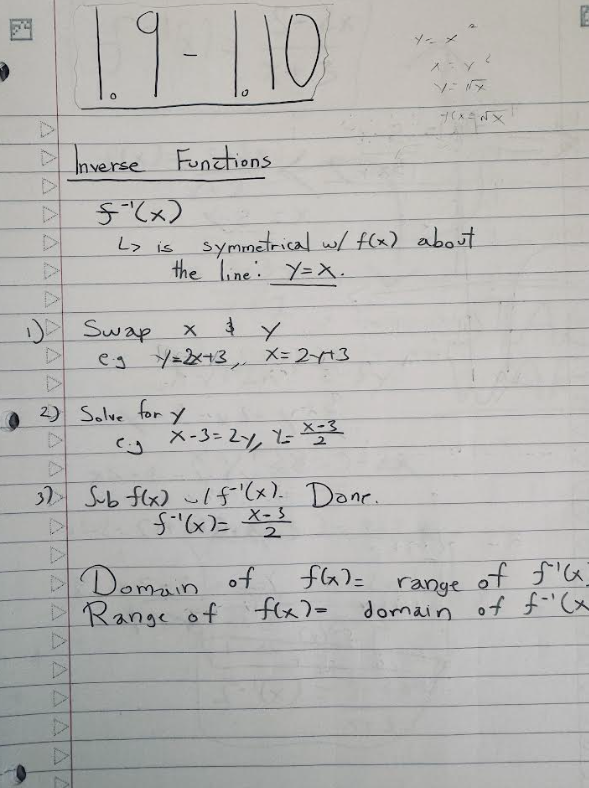 1.9 - 1.10
y = x²
x = y²
y = √x
Inverse Functions
f⁻¹(x)
↳ is symmetrical w/ f(x) about
the line: y=x.
1) Swap x & y
e.g y=2x+3, x=2y+3
2) Solve for y
e.g x-3=2y, y= x-3/2
3) Sub f(x) w/ f⁻¹(x). Done.
f⁻¹(x)= x-3/2
Domain of f(x)= range of f⁻¹(x
Range of f(x)= domain of f⁻¹(x